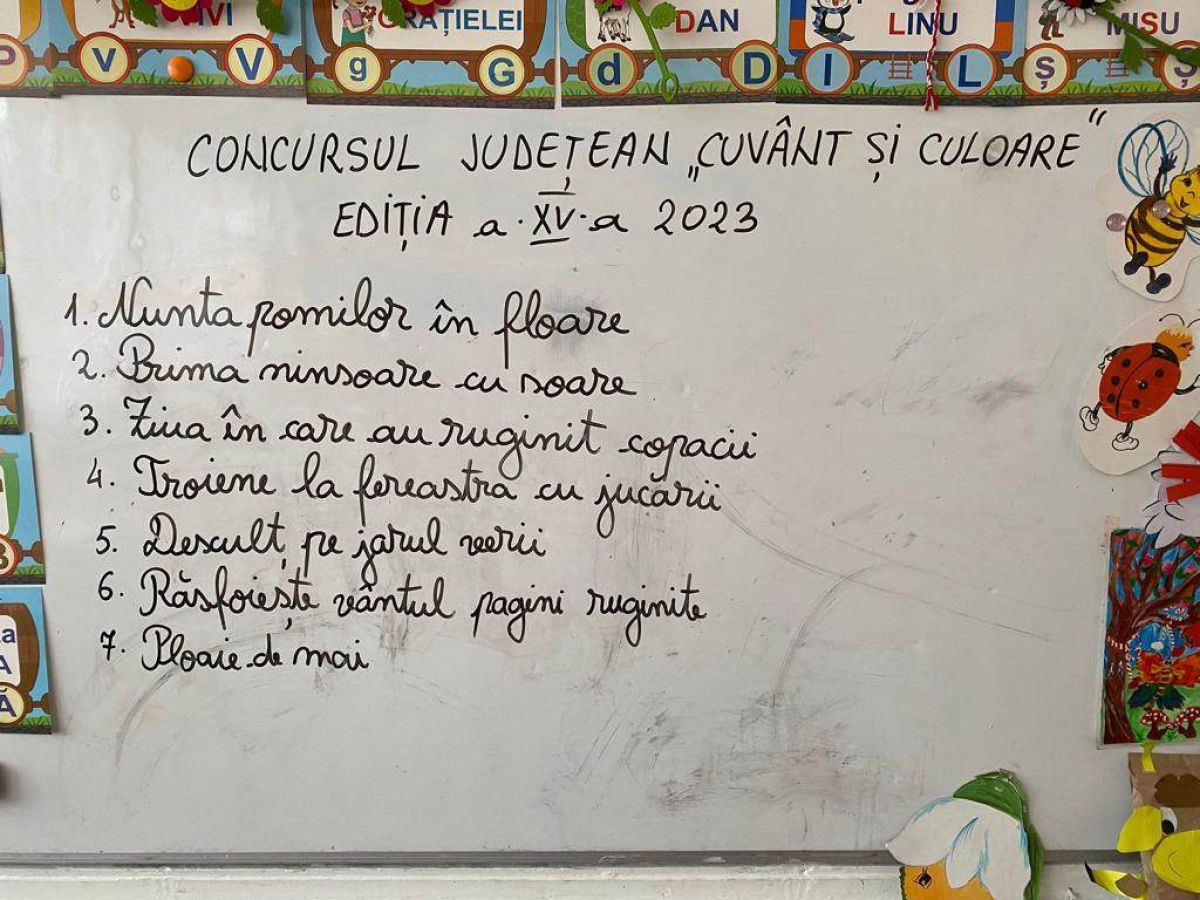 VI
GRAȚIELEI
DAN
LINU
MIȘU
P v V g G d D l L ș Ș
CONCURSUL JUDEȚEAN „CUVÂNT ȘI CULOARE"
EDIȚIA a XV-a 2023
1. Nunta pomilor în floare
2. Prima ninsoare cu soare
3. Ziua în care au ruginit copacii
4. Troiene la fereastra cu jucării
5. Desculț pe jarul verii
6. Răsfoiește vântul pagini ruginite
7. Ploaie de mai
B
ta
A
Ă